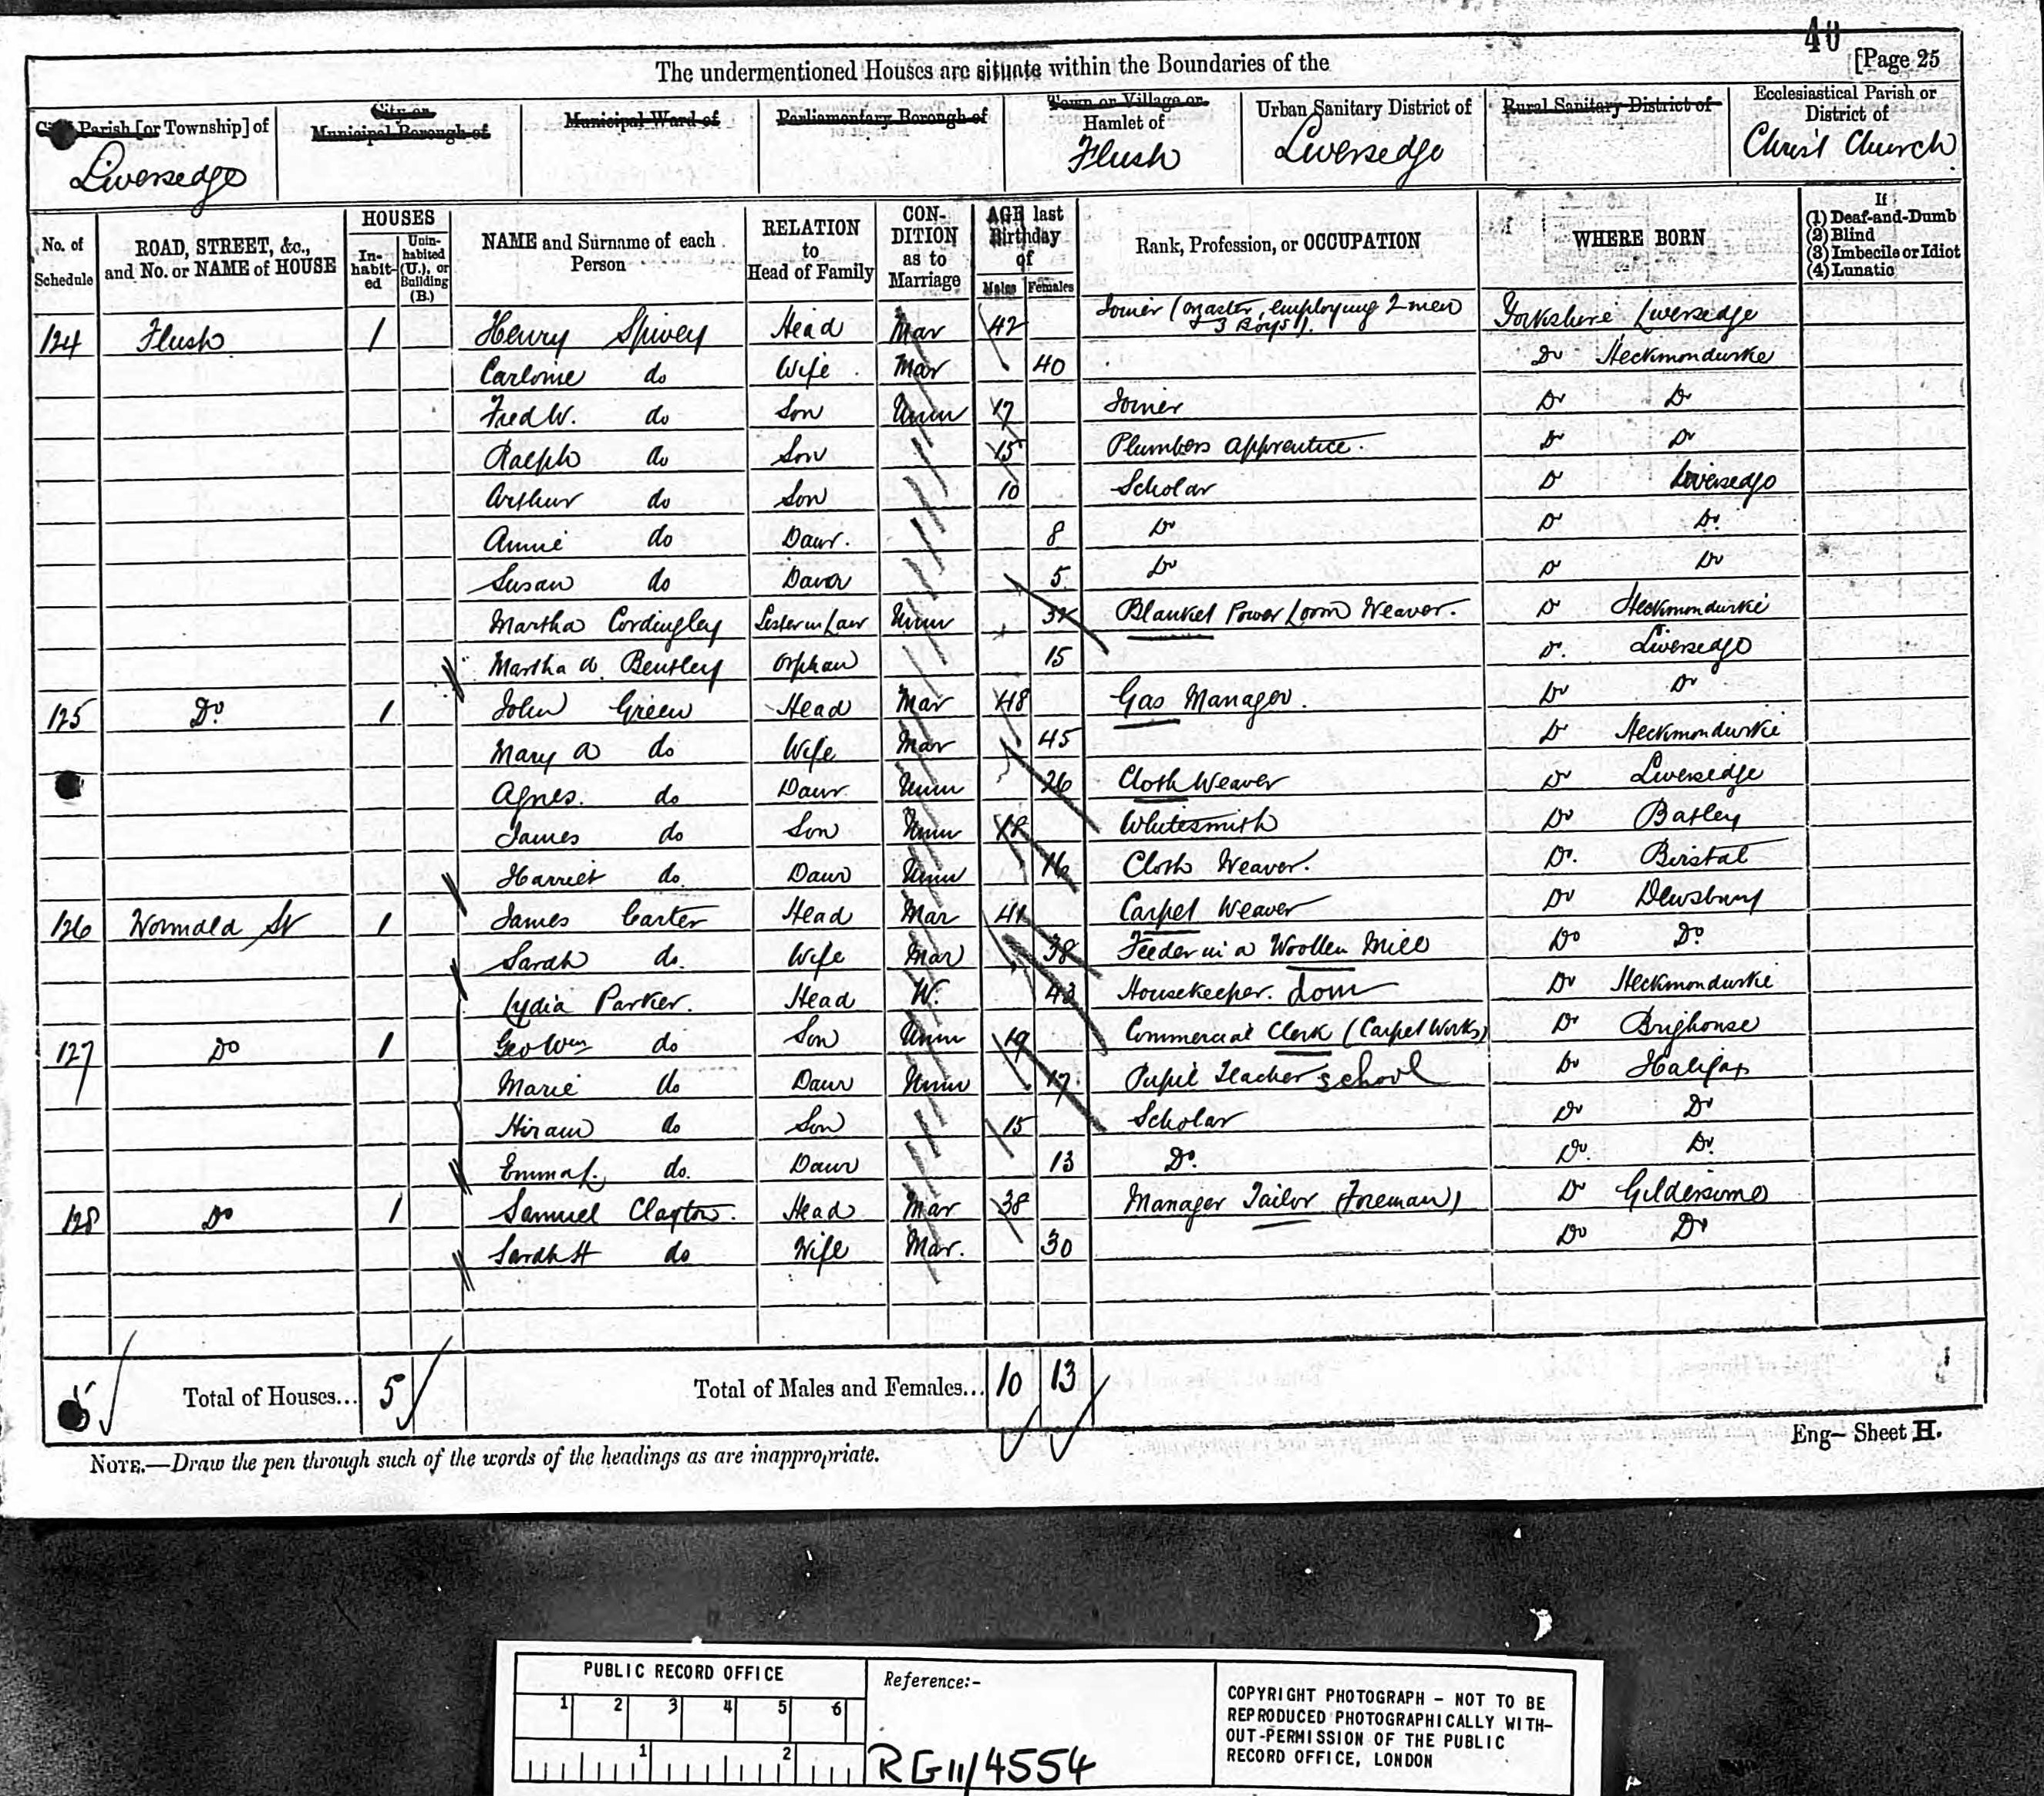 40
The undermentioned Houses are situate within the Boundaries of the [Page 25
Civil Parish [or Township] of
Liversedge
City or Municipal Borough of
Municipal Ward of
Parliamentary Borough of
Town or Village or Hamlet of
Flush
Urban Sanitary District of
Liversedge
Rural Sanitary District of
Ecclesiastical Parish or District of
Christ Church
No. of Schedule
ROAD, STREET, &c., and No. or NAME of HOUSE
HOUSES
In-habit-ed
Unin-habited (U.), or Building (B.)
NAME and Surname of each Person
RELATION to Head of Family
CON-DITION as to Marriage
AGE last Birthday of
Males Females
Rank, Profession, or OCCUPATION
WHERE BORN
If
(1) Deaf-and-Dumb
(2) Blind
(3) Imbecile or Idiot
(4) Lunatic
124 Flush 1 Henry Spivey Head Mar 42 Joiner (Master, employing 2 men 3 Boys). Yorkshire Liversedge
Carloine do Wife Mar 40 Do Heckmondwike
Fred W. do Son Unm 17 Joiner Do Do
Ralph do Son 15 Plumbers Apprentice. Do Do
Arthur do Son 10 Scholar Do Liversedge
Annie do Daur. 8 Do Do Do
Susan do Daur 5 Do Do Do
Martha Cordingley Sister in Law Unm 32 Blanket Power Loom Weaver. Do Heckmondwike
Martha A. Bentley Orphan 15 Do Liversedge
125 Do 1 John Green Head Mar 48 Gas Manager. Do Do
Mary A do Wife Mar 45 Do Heckmondwike
Agnes. do Daur Unm 26 Cloth Weaver Do Liversedge
James do Son Unm 18 Whitesmith Do Batley
Harriet do Daur Unm 16 Cloth Weaver. Do. Birstal
126 Wormald St 1 James Carter Head Mar 41 Carpet Weaver Do Dewsbury
Sarah do. Wife Mar 38 Feeder in a Woollen Mill Do Do
Lydia Parker. Head W. 43 Housekeeper. dom Do Heckmondwike
127 Do 1 Geo Wm do Son Unm 19 Commercial Clerk (Carpet Works) Do Brighouse
Marie do Daur Unm 17 Pupil Teacher school Do Halifax
Hiram do Son 15 Scholar Do Do
Emma L. do. Daur 13 Do. Do. Do
128 Do 1 Samuel Clayton. Head Mar 38 Manager Tailor (Foreman) Do Gildersome
Sarah H do Wife Mar. 30 Do Do
5 Total of Houses... 5 Total of Males and Females... 10 13
NOTE.—Draw the pen through such of the words of the headings as are inappropriate.
Eng— Sheet H.
PUBLIC RECORD OFFICE
1 2 3 4 5 6
1 2
Reference:-
RG11/4554
COPYRIGHT PHOTOGRAPH – NOT TO BE
REPRODUCED PHOTOGRAPHICALLY WITH-
OUT-PERMISSION OF THE PUBLIC
RECORD OFFICE, LONDON